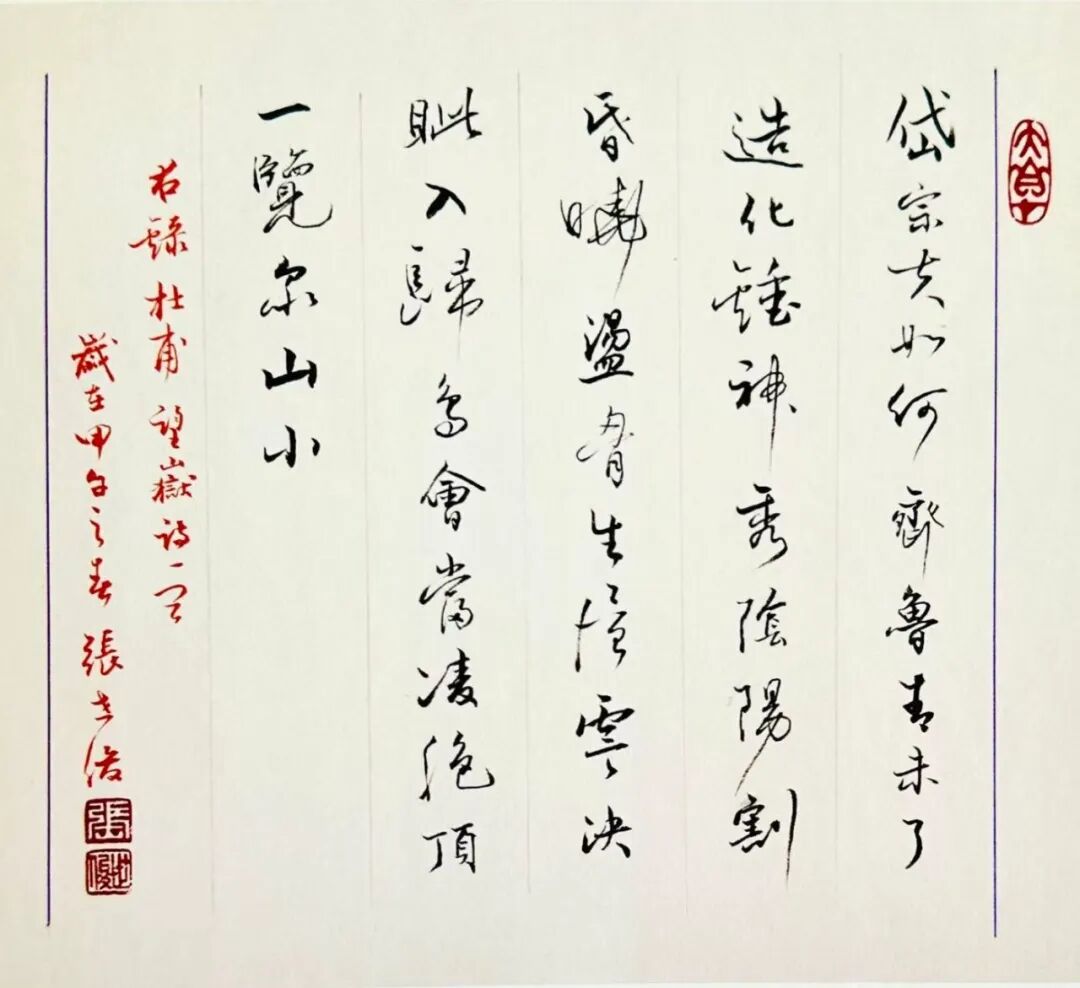 岱宗夫如何齊魯青未了
造化鍾神秀陰陽割
昏曉盪胷生層雲決
眦入歸鳥會當凌絕頂
一覽衆山小
右録杜甫望嶽詩一首
歲在甲午之春張世俊